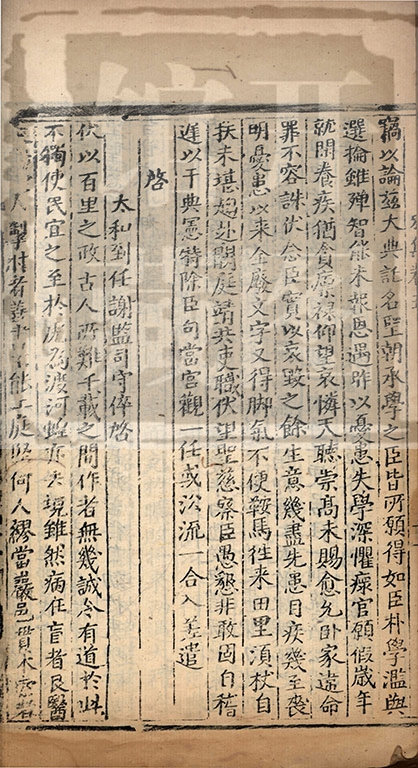 竊以論玆大典託名聖朝承學之臣皆所願得如臣朴學濫與
選掄雖殫智能未報恩遇昨以憂患失學深懼瘝官願假歲年
就閑養疾猶食廩祿仰望哀憐天聽崇高未賜愈允卧家違命
罪不容誅伏念臣實以哀毀之餘生意幾盡先患目疾幾至喪
明憂患以來全廢文字又得脚氣不便鞍馬徃来田里湏杖自
扶未堪趨赴闕庭靖共吏職伏望聖慈察臣愚懇非敢固自稽
遅以干典憲特除臣句當宫觀一任或㳂流一合入差遣
啓
太和到任謝監司守倅啓
伏以百里之政古人所難千載之間作者無幾誠令有道於此
不獨使民宜之至於虎為渡河蝗不失境雖然病在盲者良醫
人擊柱者善 能工庭堅何人謬當嚴邑賈